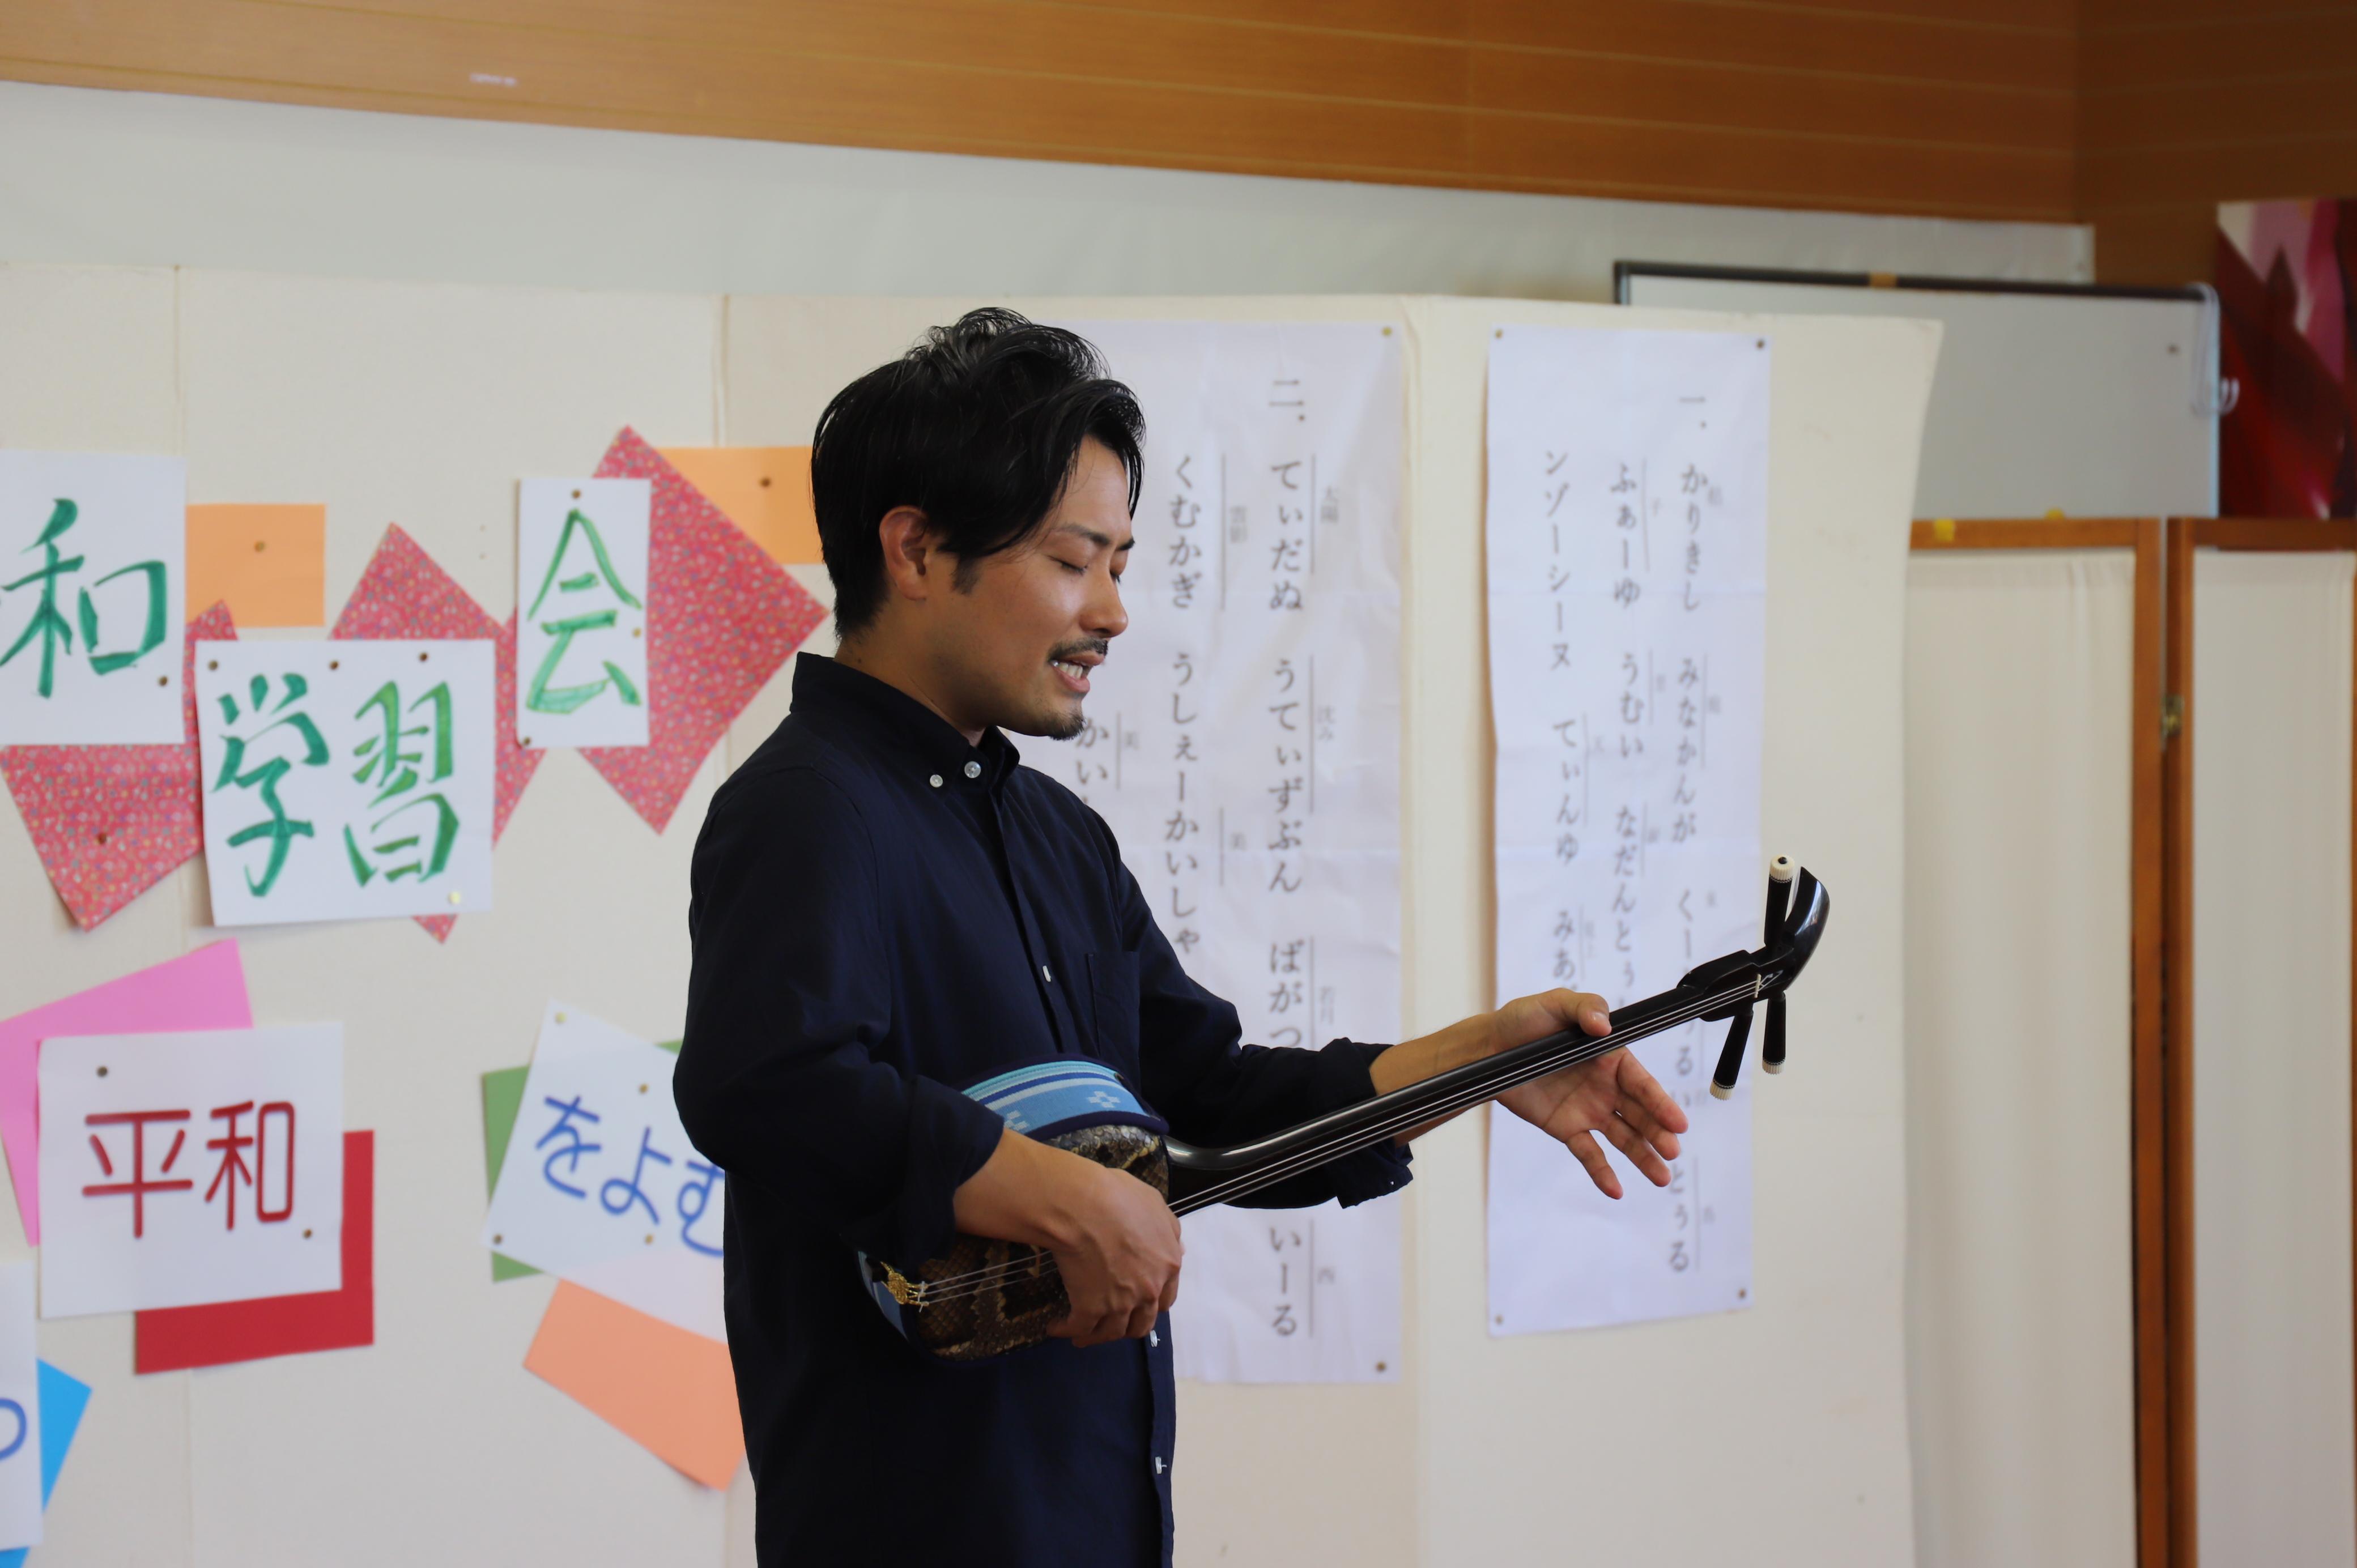 和
学習
会
平和
をよむ
一. かりきし みなかんが くー
ふぁーゆ うむい なだんとぅ
ンゾーシーヌ てぃんゆ みあ
とぅる
二. てぃだぬ うてぃずぶん ばがつ
太陽
沈み
若月
いーる
西
くむかぎ うしぇーかいしゃ
美
かい